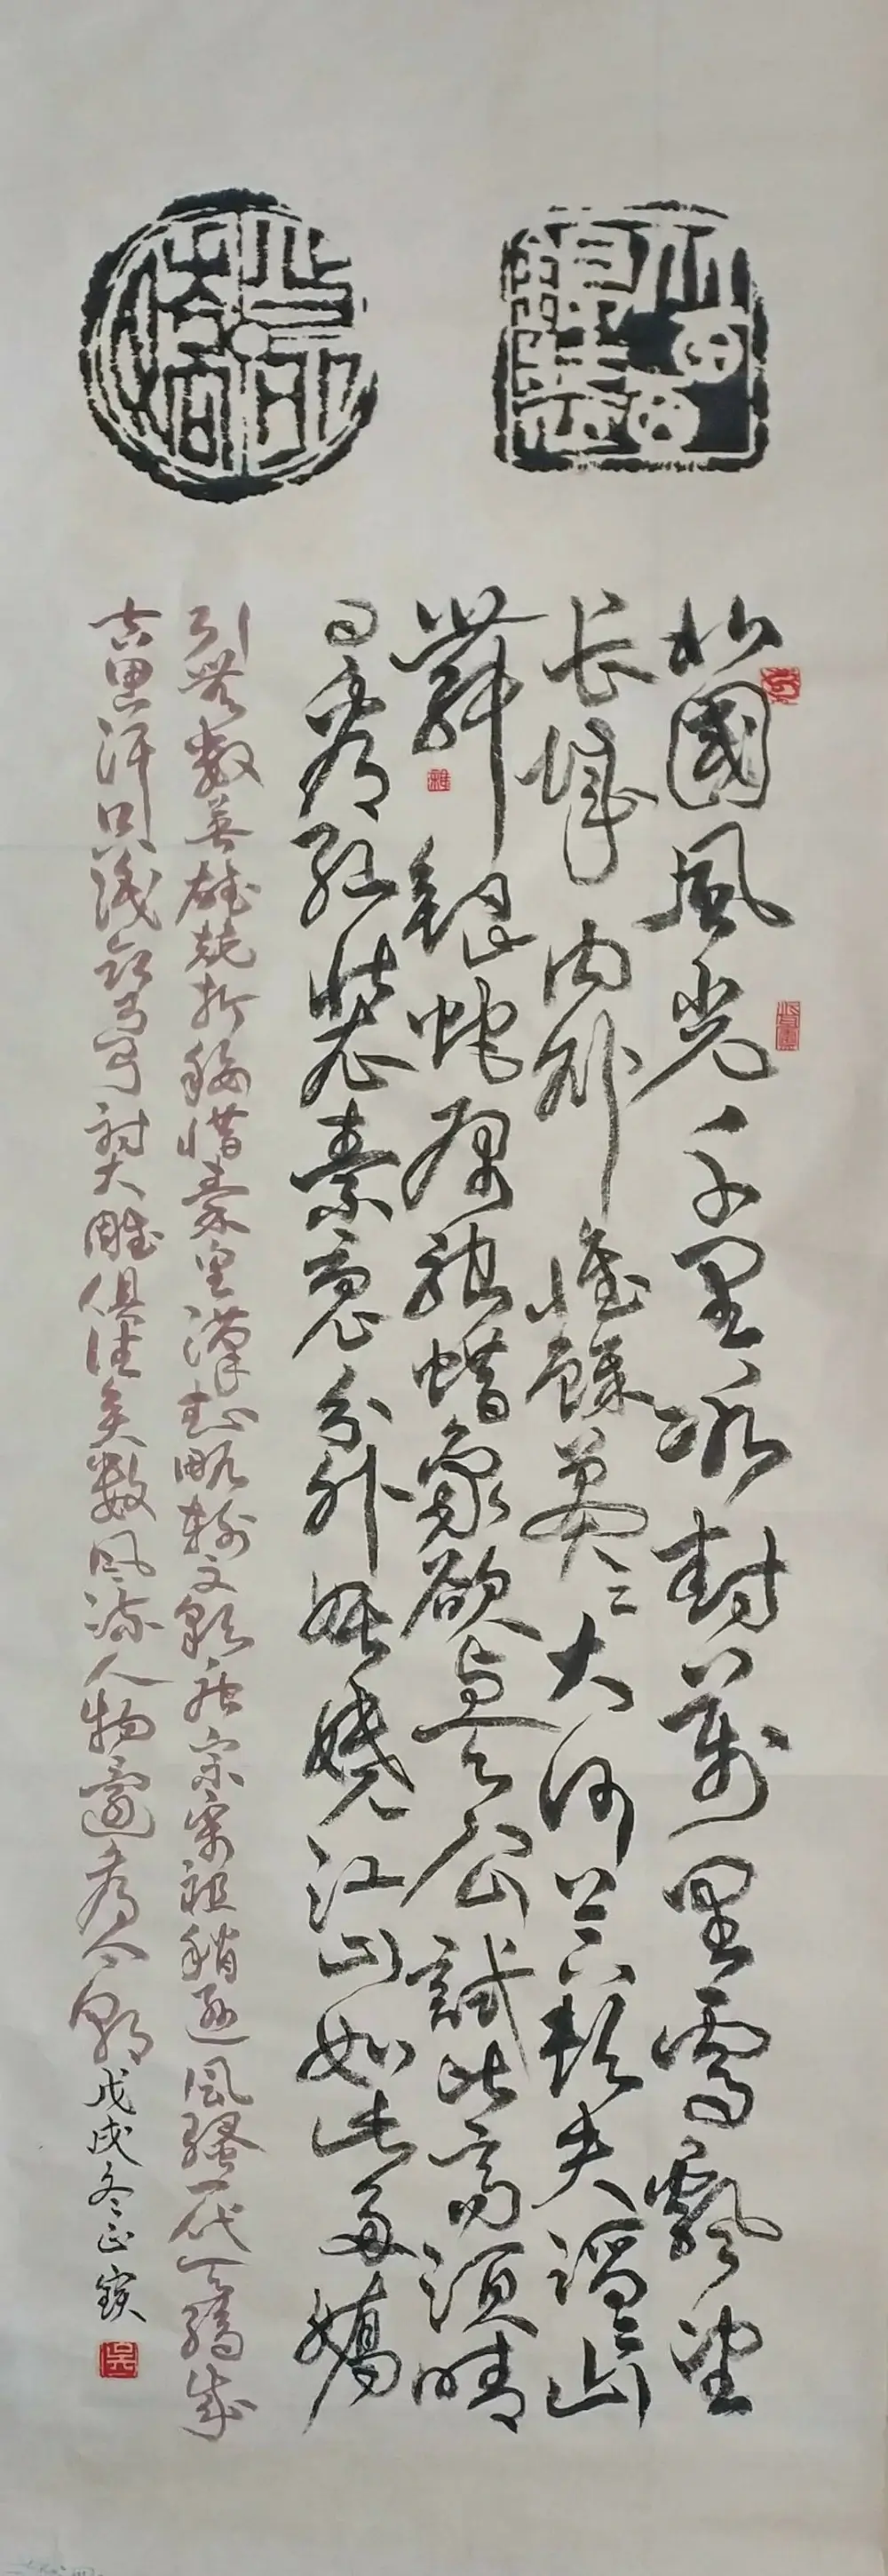 北國風光千里冰封萬里雪飄望
长城内外惟餘莽〻大河上下頓失滔〻山
舞銀蛇原馳蜡象欲與天公試比高須晴
日看红裝素裹分外妖嬈江山如此多嬌
引無數英雄競折腰惜秦皇漢武略輸文彩唐宗宋祖稍遜風騷一代天驕成
吉思汗只識彎弓射大雕俱往矣數風流人物還看今朝戊戌冬正
吳